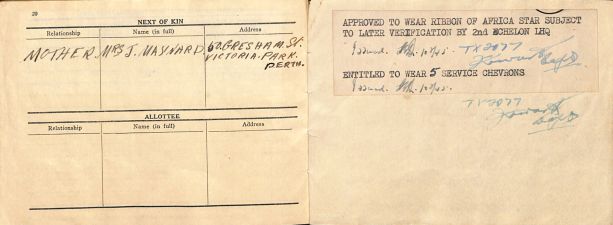 20
NEXT OF KIN
Relationship Name (in full) Address
MOTHER MRS J. MAYNARD 60 GRESHAM St.
VICTORIA PARK
PERTH.
ALLOTTEE
Relationship Name (in full) Address
APPROVED TO WEAR RIBBON OF AFRICA STAR SUBJECT
TO LATER VERIFICATION BY 2nd ECHELON LHQ
Issued
ENTITLED TO WEAR 5 SERVICE CHEVRONS
Issued